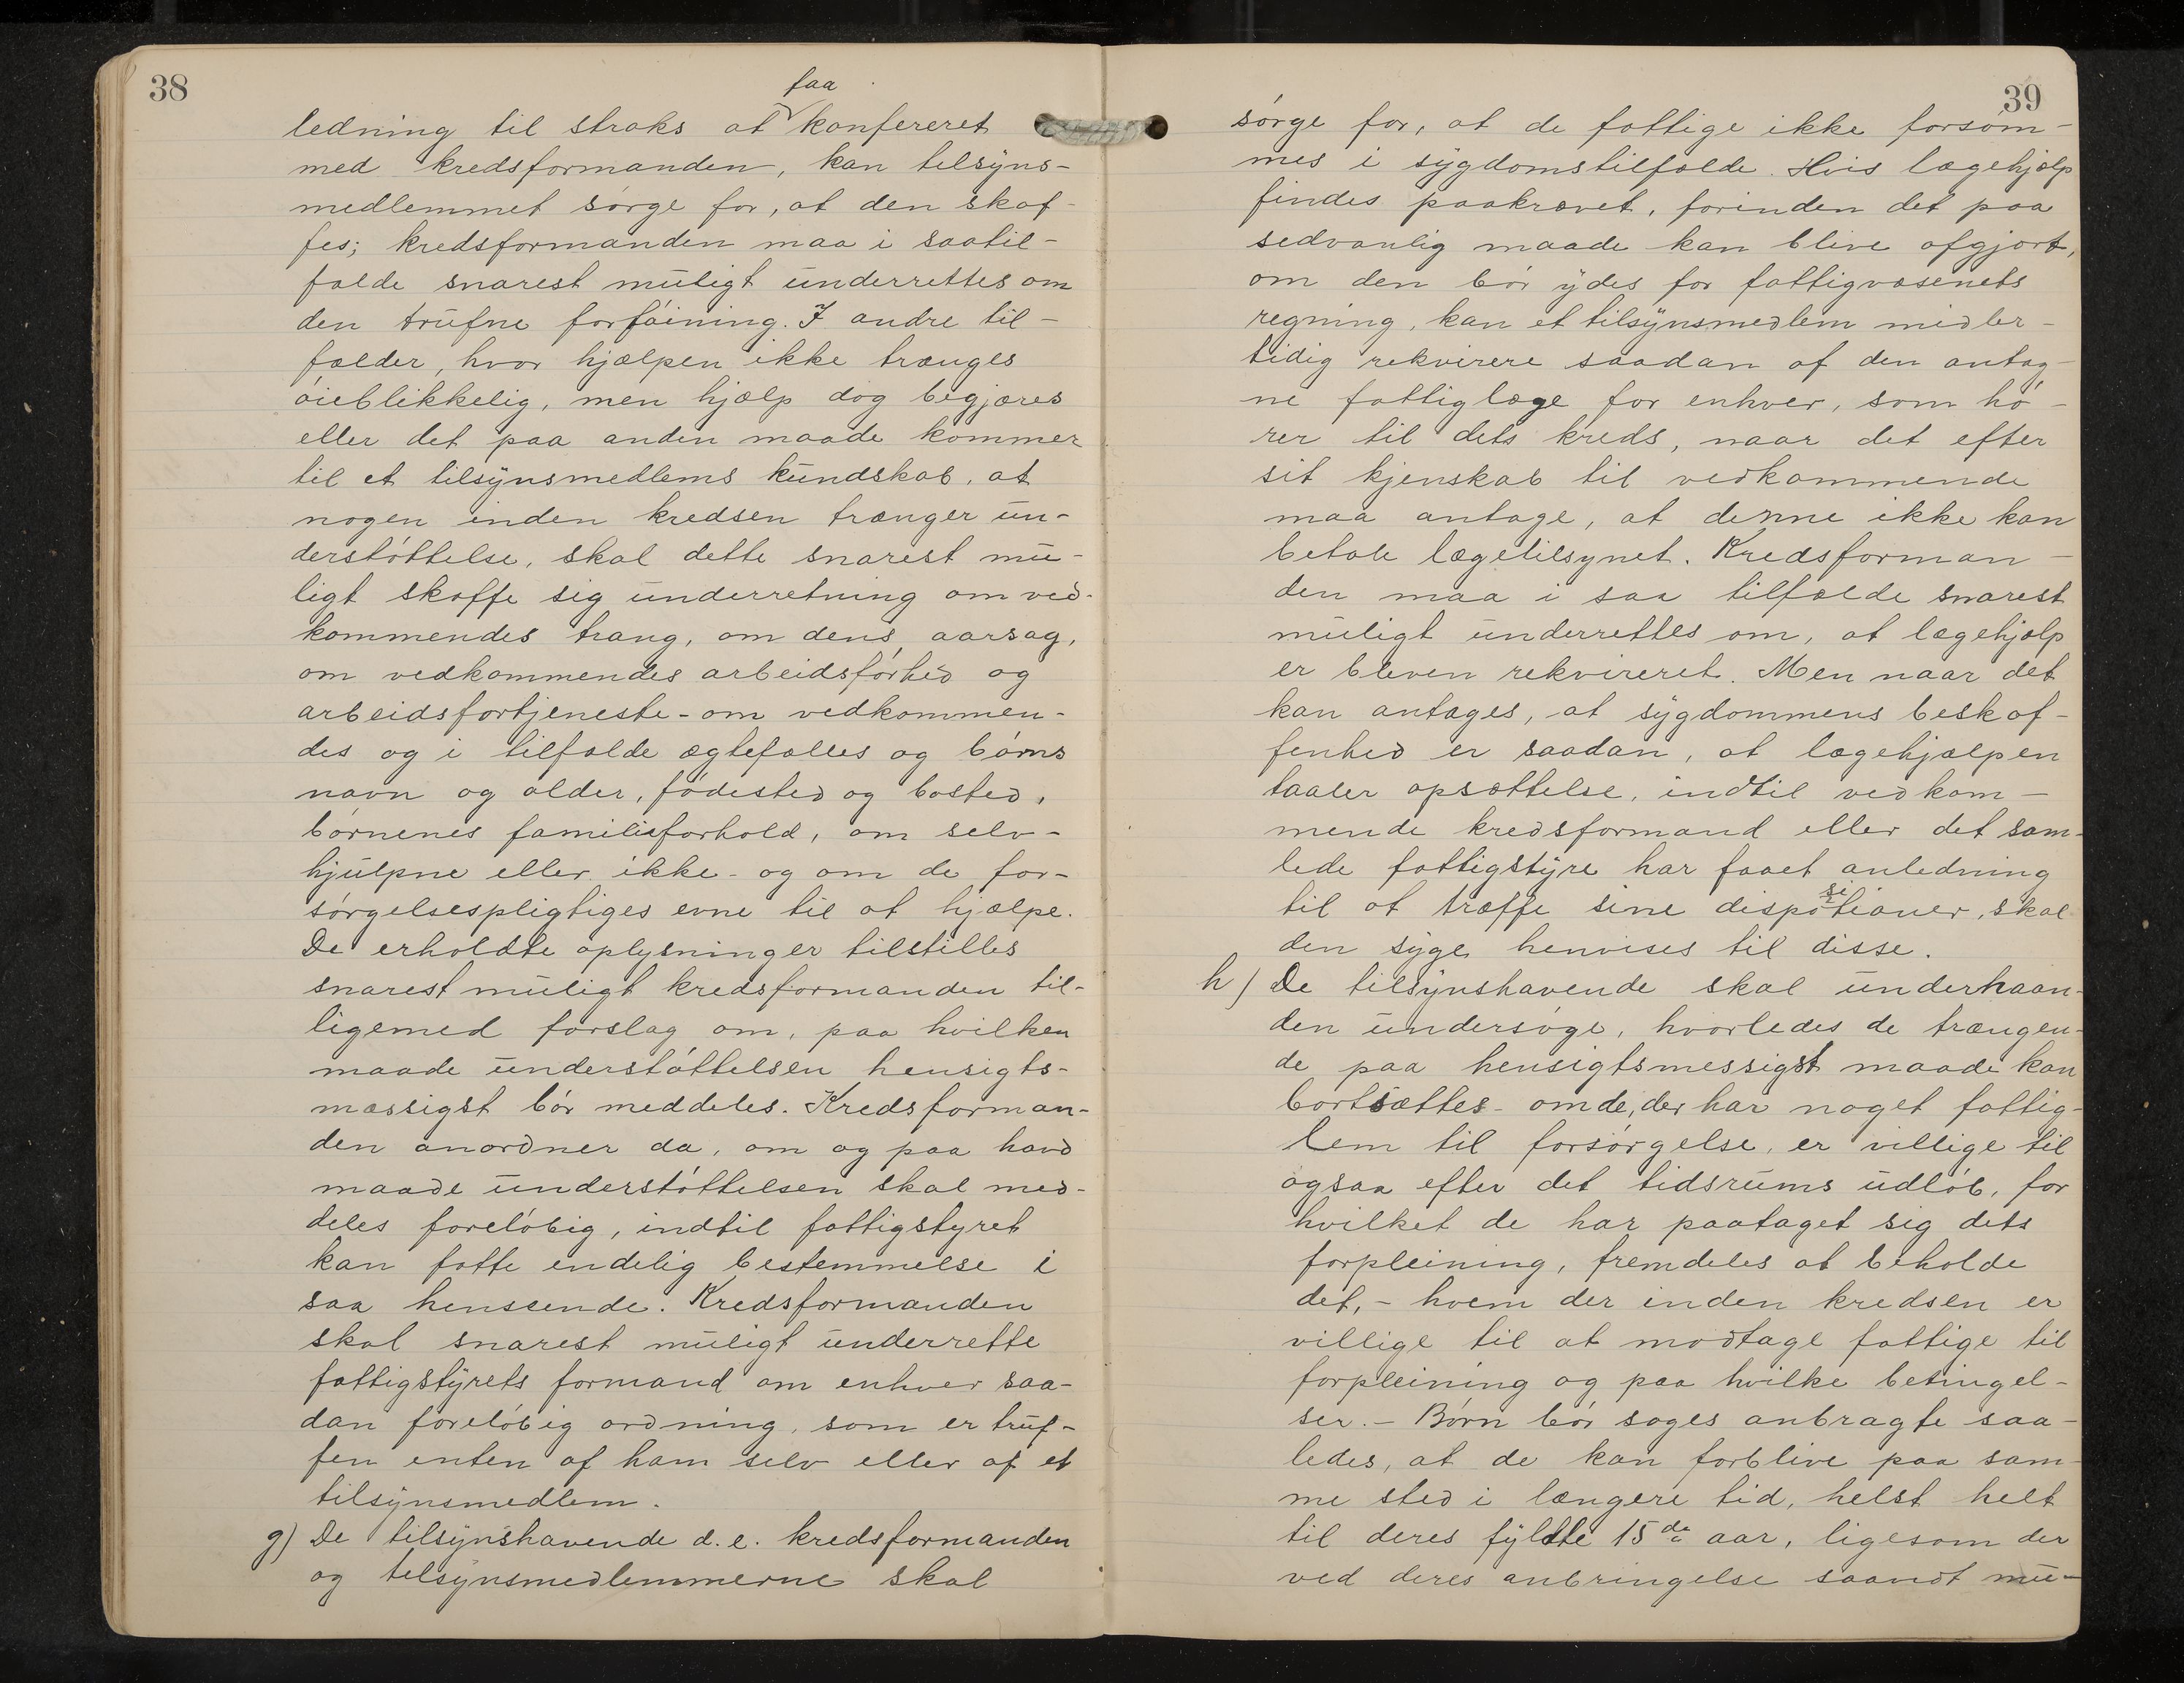 38
ledning til straks at faa konfereret
med kredsformanden, kan tilsyns-
medlemmet sørge for, at den skaf-
fes; kredsformanden maa i saatil-
fælde snarest muligt underrettes om
den trufne forføining. I andre til-
fælder, hvor hjælpen ikke trænges
øieblikkelig, men hjælp dog begjæres
eller det paa anden maade kommer
til et tilsynsmedlems kundskab, at
nogen inden kredsen trænger un-
derstøttelse, skal dette snarest mu-
ligt skaffe sig underretning om ved-
kommendes trang, om dens aarsag,
om vedkommendes arbeidsførhed og
arbeidsfortjeneste - om vedkommen-
des og i tilfælde ægtefælles og børns
navn og alder, fødested og bosted,
børnenes familieforhold, om selv-
hjulpne eller ikke - og om de for-
sørgelsespligtiges evne til at hjælpe.
De erholdte oplysninger tilstilles
snarest muligt kredsformanden til-
ligemed forslag om, paa hvilken
maade understøttelsen hensigts-
mæssigst bør meddeles. Kredsforman-
den anordner da, om og paa hvad
maade understøttelsen skal med-
deles foreløbig, indtil fattigstyret
kan fatte endelig bestemmelse i
saa henseende. Kredsformanden
skal snarest muligt underrette
fattigstyrets formand om enhver saa-
dan foreløbig ordning, som er truf-
fen enten af ham selv eller af et
tilsynsmedlem.
g) De tilsynshavende d.e. kredsformanden
og tilsynsmedlemmerne skal
39
sørge for, at de fattige ikke forsøm-
mes i sygdomstilfælde. Hvis lægehjælp
findes paakrævet, forinden det paa
sedvanlig maade kan blive afgjort,
om den bør ydes for fattigvæsenets
regning, kan et tilsynsmedlem midler-
tidig rekvirere saadan af den antag-
ne fattiglæge for enhver, som hø-
rer til dets kreds, naar det efter
sit kjenskab til vedkommende
maa antage, at denne ikke kan
betale lægetilsynet. Kredsforman-
den maa i saa tilfælde snarest
muligt underrettes om, at lægehjælp
er bleven rekvireret. Men naar det
kan antages, at sygdommens beskaf-
fenhed er saadan, at lægehjælpen
taaler opsættelse, indtil vedkom-
mende kredsformand eller det sam-
lede fattigstyre har faaet anledning
til at træffe sine dispositioner, skal
den syge henvises til disse.
h) De tilsynshavende skal underhaan-
den undersøge, hvorledes de trængen-
de paa hensigtsmessigst maade kan
bortsættes - om de, der har noget fattig-
lem til forsørgelse, er villige til
ogsaa efter det tidsrums udløb, for
hvilket de har paataget sig dets
forpleining, fremdeles at beholde
det, - hvem der inden kredsen er
villige til at modtage fattige til
forpleining og paa hvilke betingel-
ser. - Børn bør søges anbragte saa-
ledes, at de kan forblive paa sam-
me sted i længere tid, helst helt
til deres fyldte 15de aar, ligesom der
ved deres anbringelse saavidt mu-